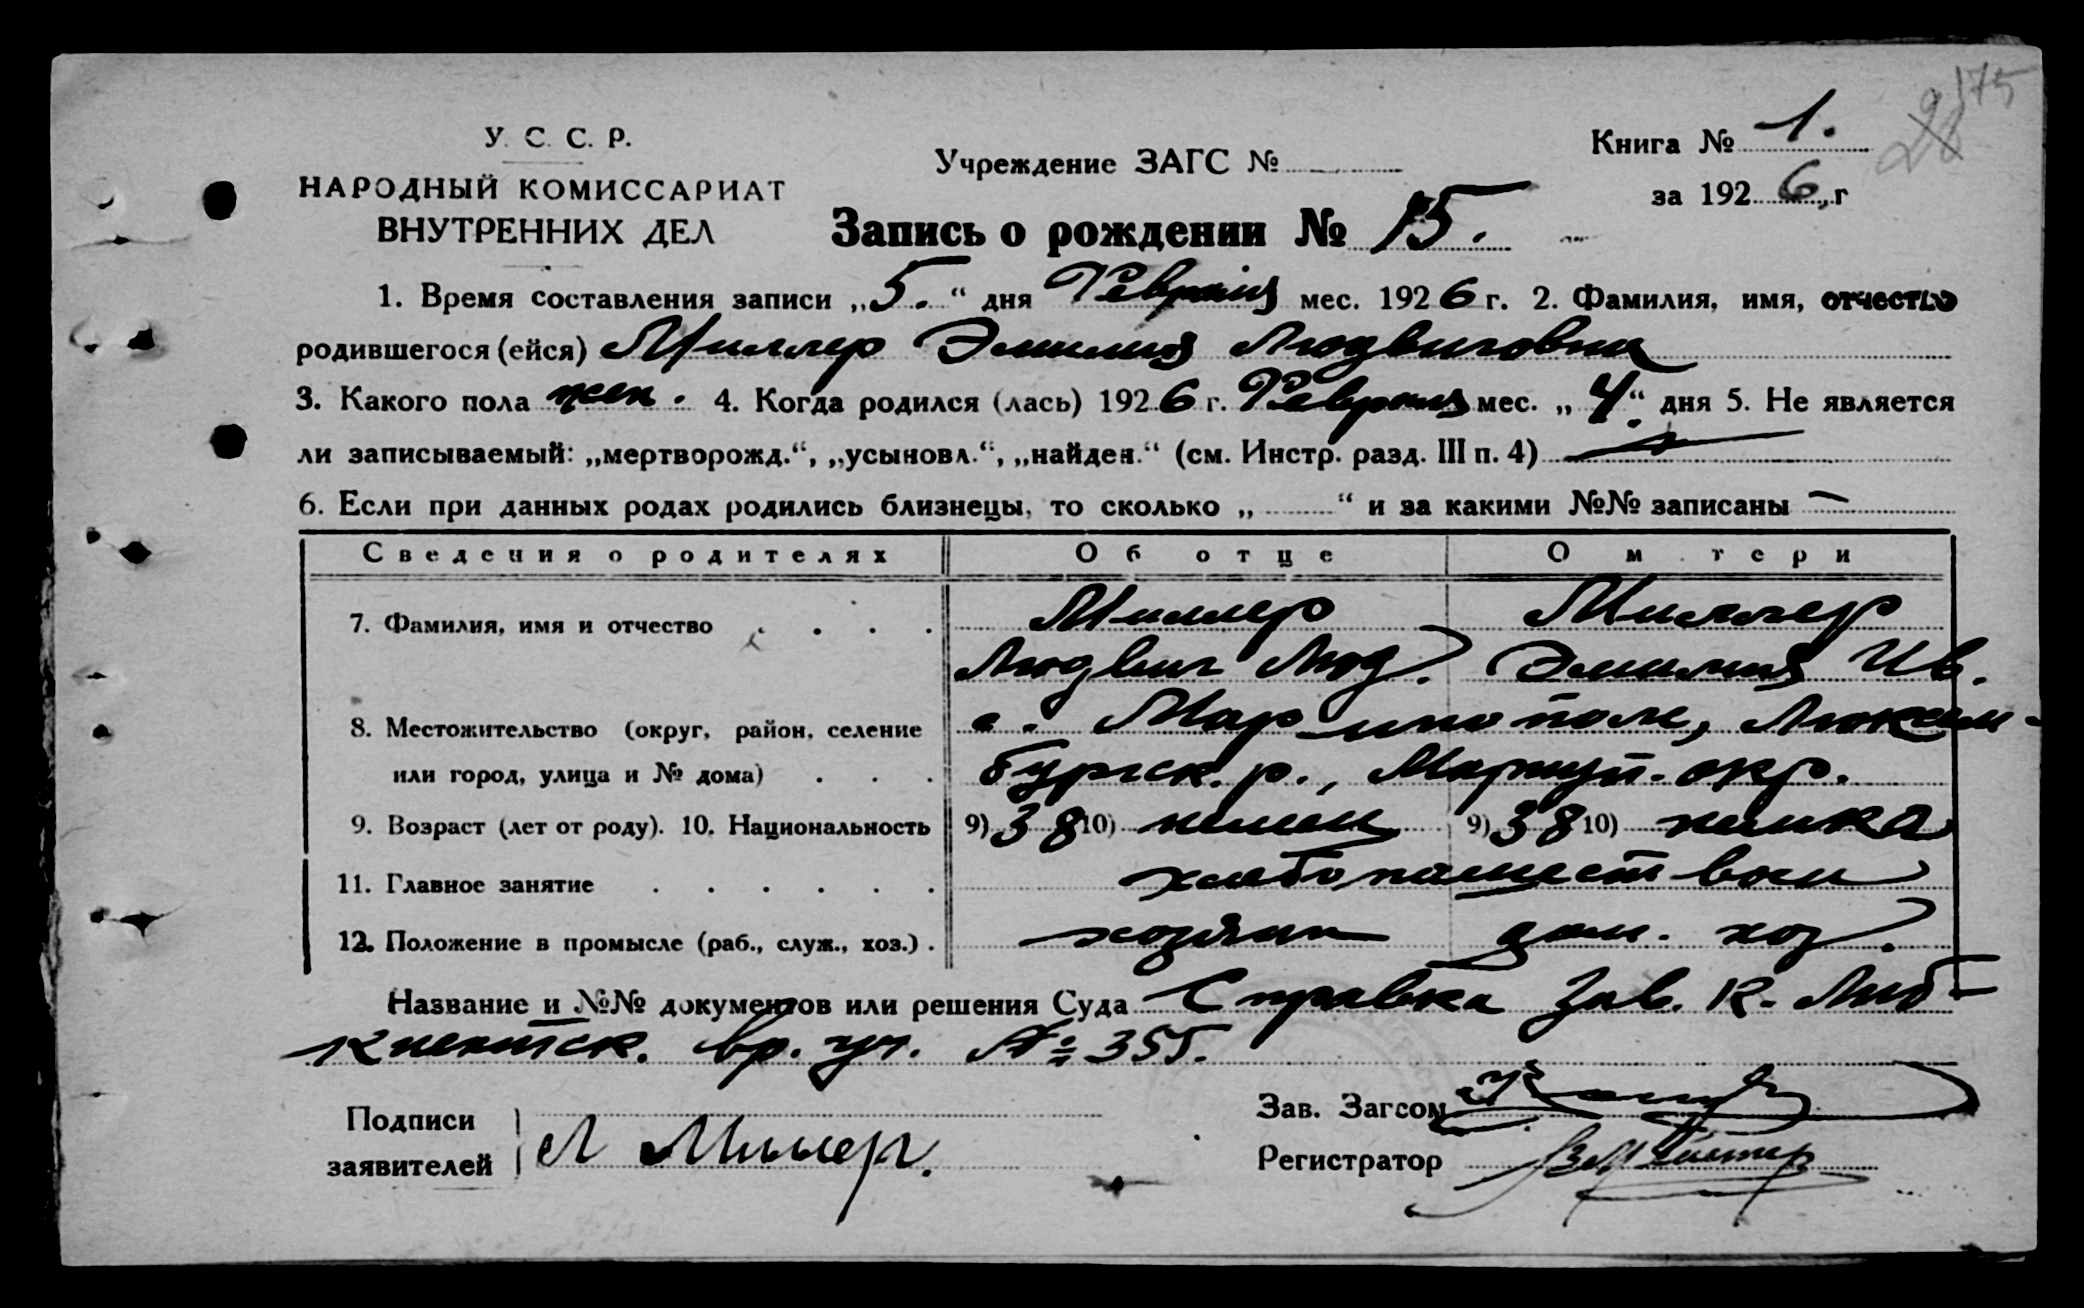 175
28
У. С. С. Р.
НАРОДНЫЙ КОМИССАРИАТ
ВНУТРЕННИХ ДЕЛ
Учреждение ЗАГС №
Книга № 1.
за 1926, г
Запись о рождении № 15.
1. Время составления записи „5.“ дня Февраля мес. 1926 г. 2. Фамилия, имя, отчество
родившегося (ейся) Миллер Эмилия Людвиговна
3. Какого пола жен. 4. Когда родился (лась) 1926 г. Февраля мес. „4.“ дня 5. Не является
ли записываемый: „мертворожд.“, „усыновл.“, „найден.“ (см. Инстр. разд. III п. 4)
6. Если при данных родах родились близнецы, то сколько „ “ и за какими №№ записаны —
Сведения о родителях Об отце О м тери
7. Фамилия, имя и отчество . . . . Миллер Миллер
Людвиг Люд. Эмилия Ив.
8. Местожительство (округ, район, селение с. Мариинополь, Люксем-
или город, улица и № дома) . . . бургск. р., Мариуп. окр.
9. Возраст (лет от роду). 10. Национальность 9) 38 10) немец 9) 38 10) немка
11. Главное занятие . . . . . . хлебопашеством
12. Положение в промысле (раб., служ., хоз.) . хозяин дом. хоз.
Название и №№ документов или решения Суда Справка Зав. К. Либ-
кнехтск. вр. уч. № 355.
Подписи
заявителей Л Миллер.
Зав. Загсом
Регистратор